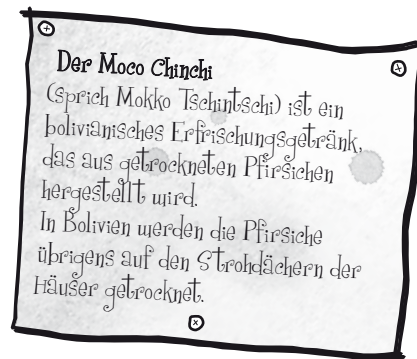 Der Moco Chinchi
(sprich Mokko Tschintschi) ist ein
bolivianisches Erfrischungsgetränk,
das aus getrockneten Pfirsichen
hergestellt wird.
In Bolivien werden die Pfirsiche
übrigens auf den Strohdächern der
Häuser getrocknet.